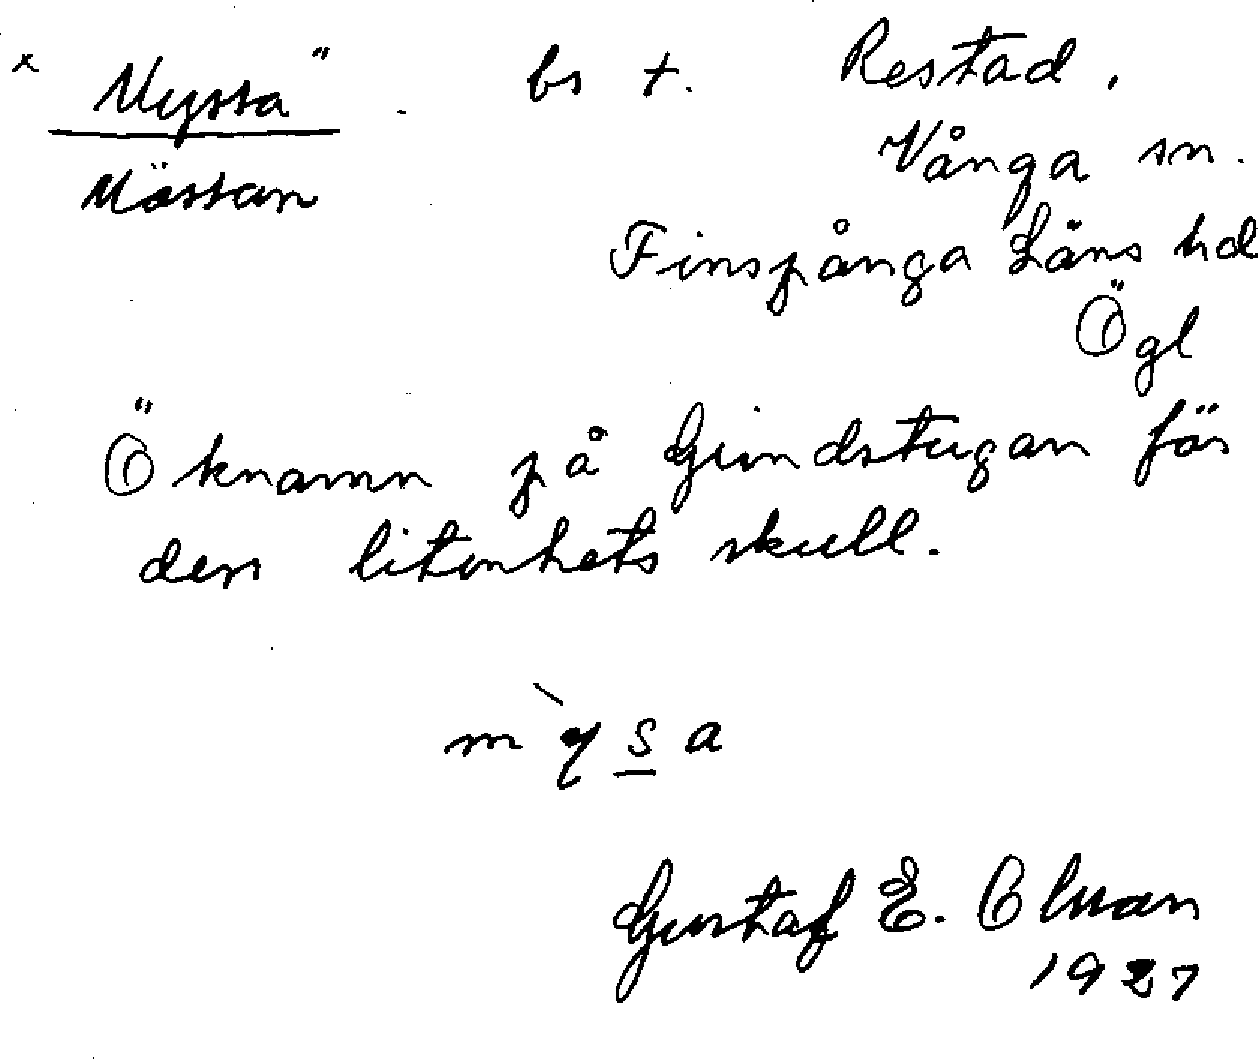 x Myssa" . bs t. Restad,
Mössan
Vånga sn.
Finspånga Läns hd
Ögl
Öknamn på Grindstugan för
den litenhets skull.
m `y s a
Gustaf E. Olsson
1927